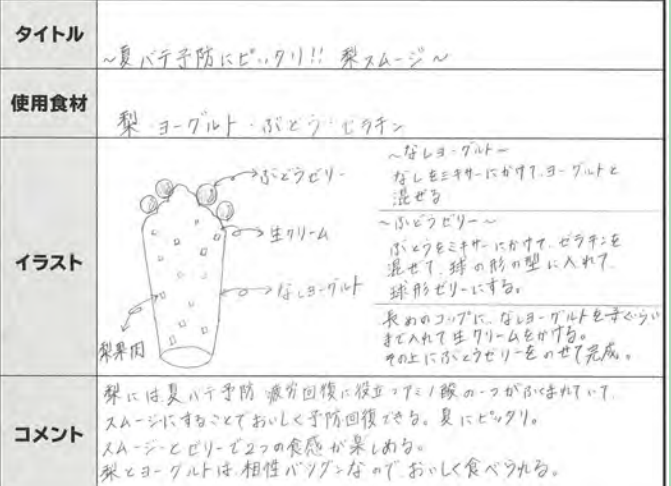 タイトル
~夏バテ予防にピッタリ!! 梨スムージ~
使用食材
梨・ヨーグルト・ぶどう・ゼラチン
イラスト
ぶどうゼリー
生クリーム
なしヨーグルト
梨果肉
~なしヨーグルト~
なしをミキサーにかけて、ヨーグルトと
混ぜる
~ぶどうゼリー~
ぶどうをミキサーにかけて、ゼラチンを
混ぜて、球の形の型に入れて、
球形ゼリーにする。
長めのコップに、なしヨーグルトを
まで入れて生クリームをかける。
その上にぶどうゼリーをのせて完成。
コメント
梨には、夏バテ予防 疲労回復に役立つアミノ酸の一つがふくまれていて、
スムージにすることでおいしく予防回復できる。夏にピッタリ。
スムージーとゼリーで2つの食感が楽しめる。
梨とヨーグルトは、相性バツグンなので、おいしく食べられる。